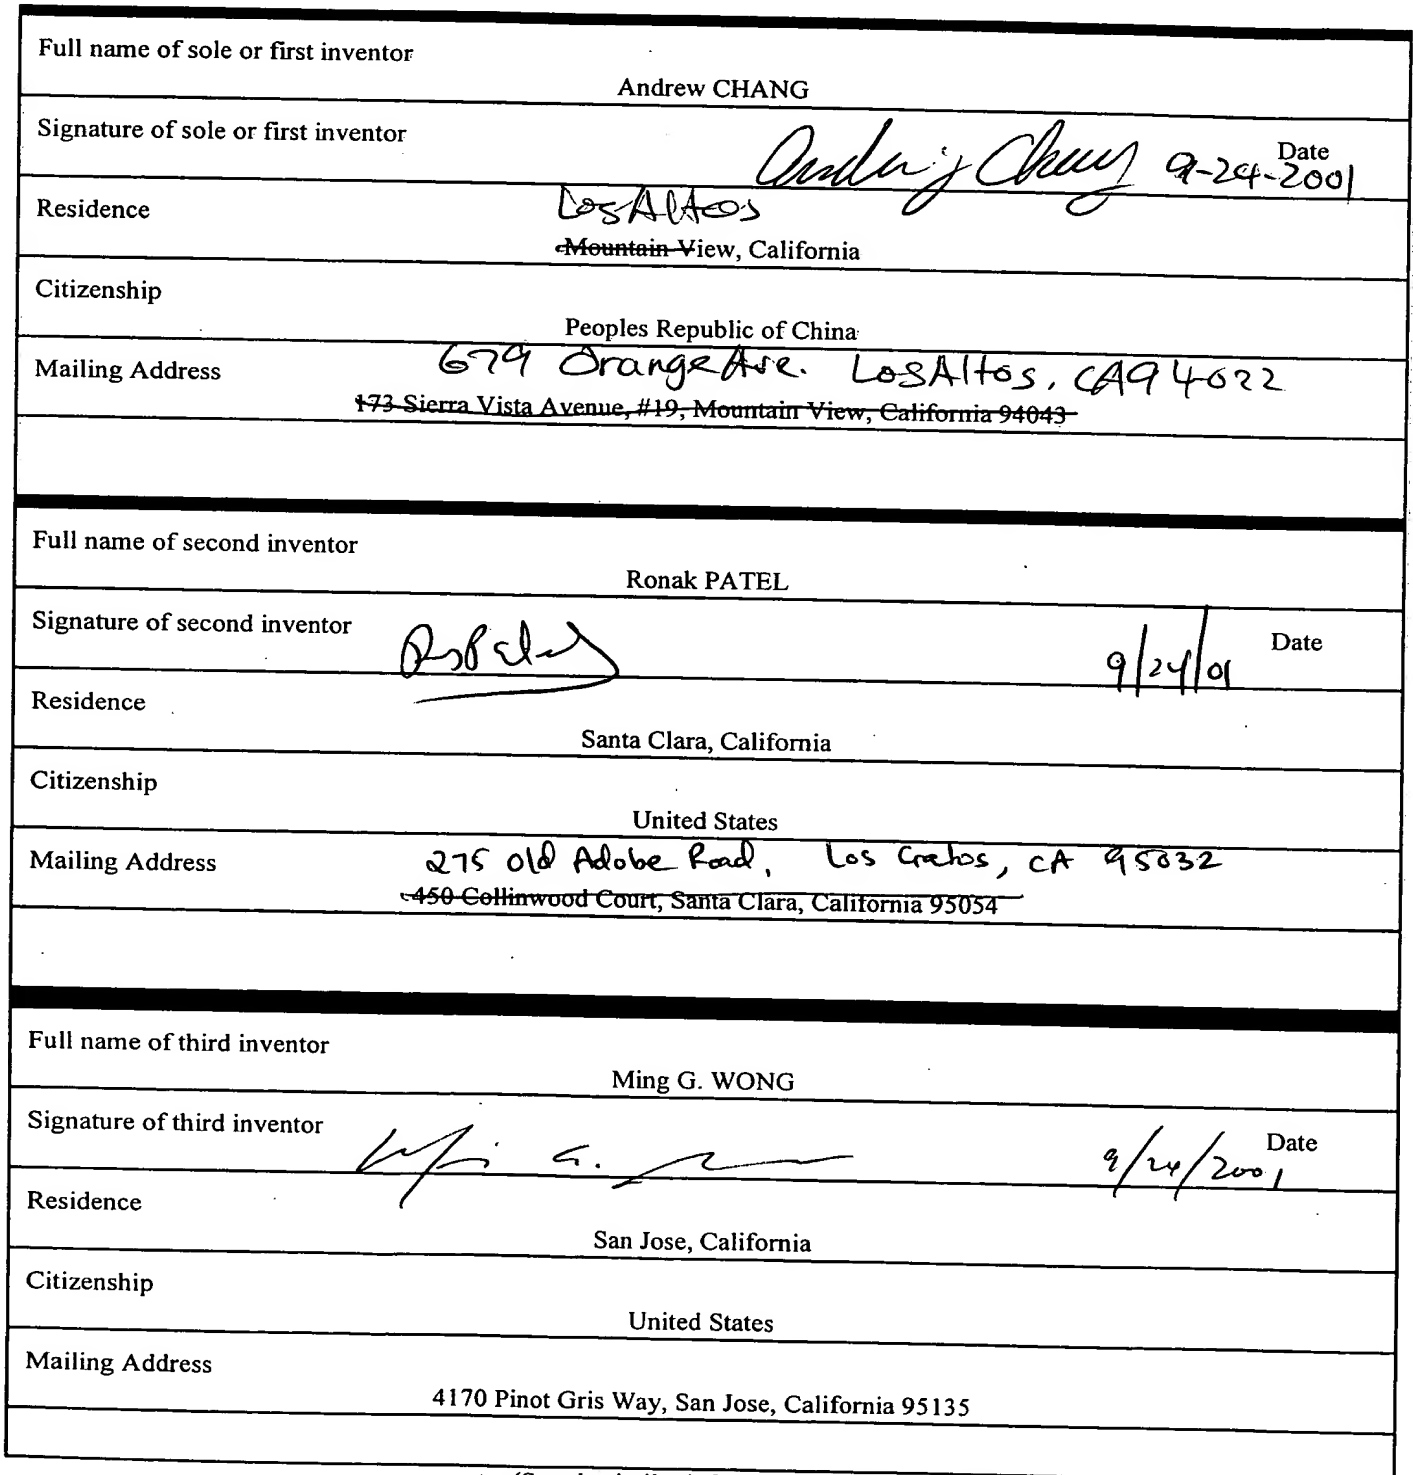 Full name of sole or first inventor
Andrew CHANG
Signature of sole or first inventor
Date
9-24-2001
Residence
Los Altos
Mountain View, California
Citizenship
Peoples Republic of China
Mailing Address
679 Orange Ave. Los Altos, CA 94022
173 Sierra Vista Avenue, #19, Mountain View, California 94043
Full name of second inventor
Ronak PATEL
Signature of second inventor
Date
9/24/01
Residence
Santa Clara, California
Citizenship
United States
Mailing Address
275 Old Adobe Road, Los Gatos, CA 95032
450 Collinwood Court, Santa Clara, California 95054
Full name of third inventor
Ming G. WONG
Signature of third inventor
G.
Date
9/24/2001
Residence
San Jose, California
Citizenship
United States
Mailing Address
4170 Pinot Gris Way, San Jose, California 95135